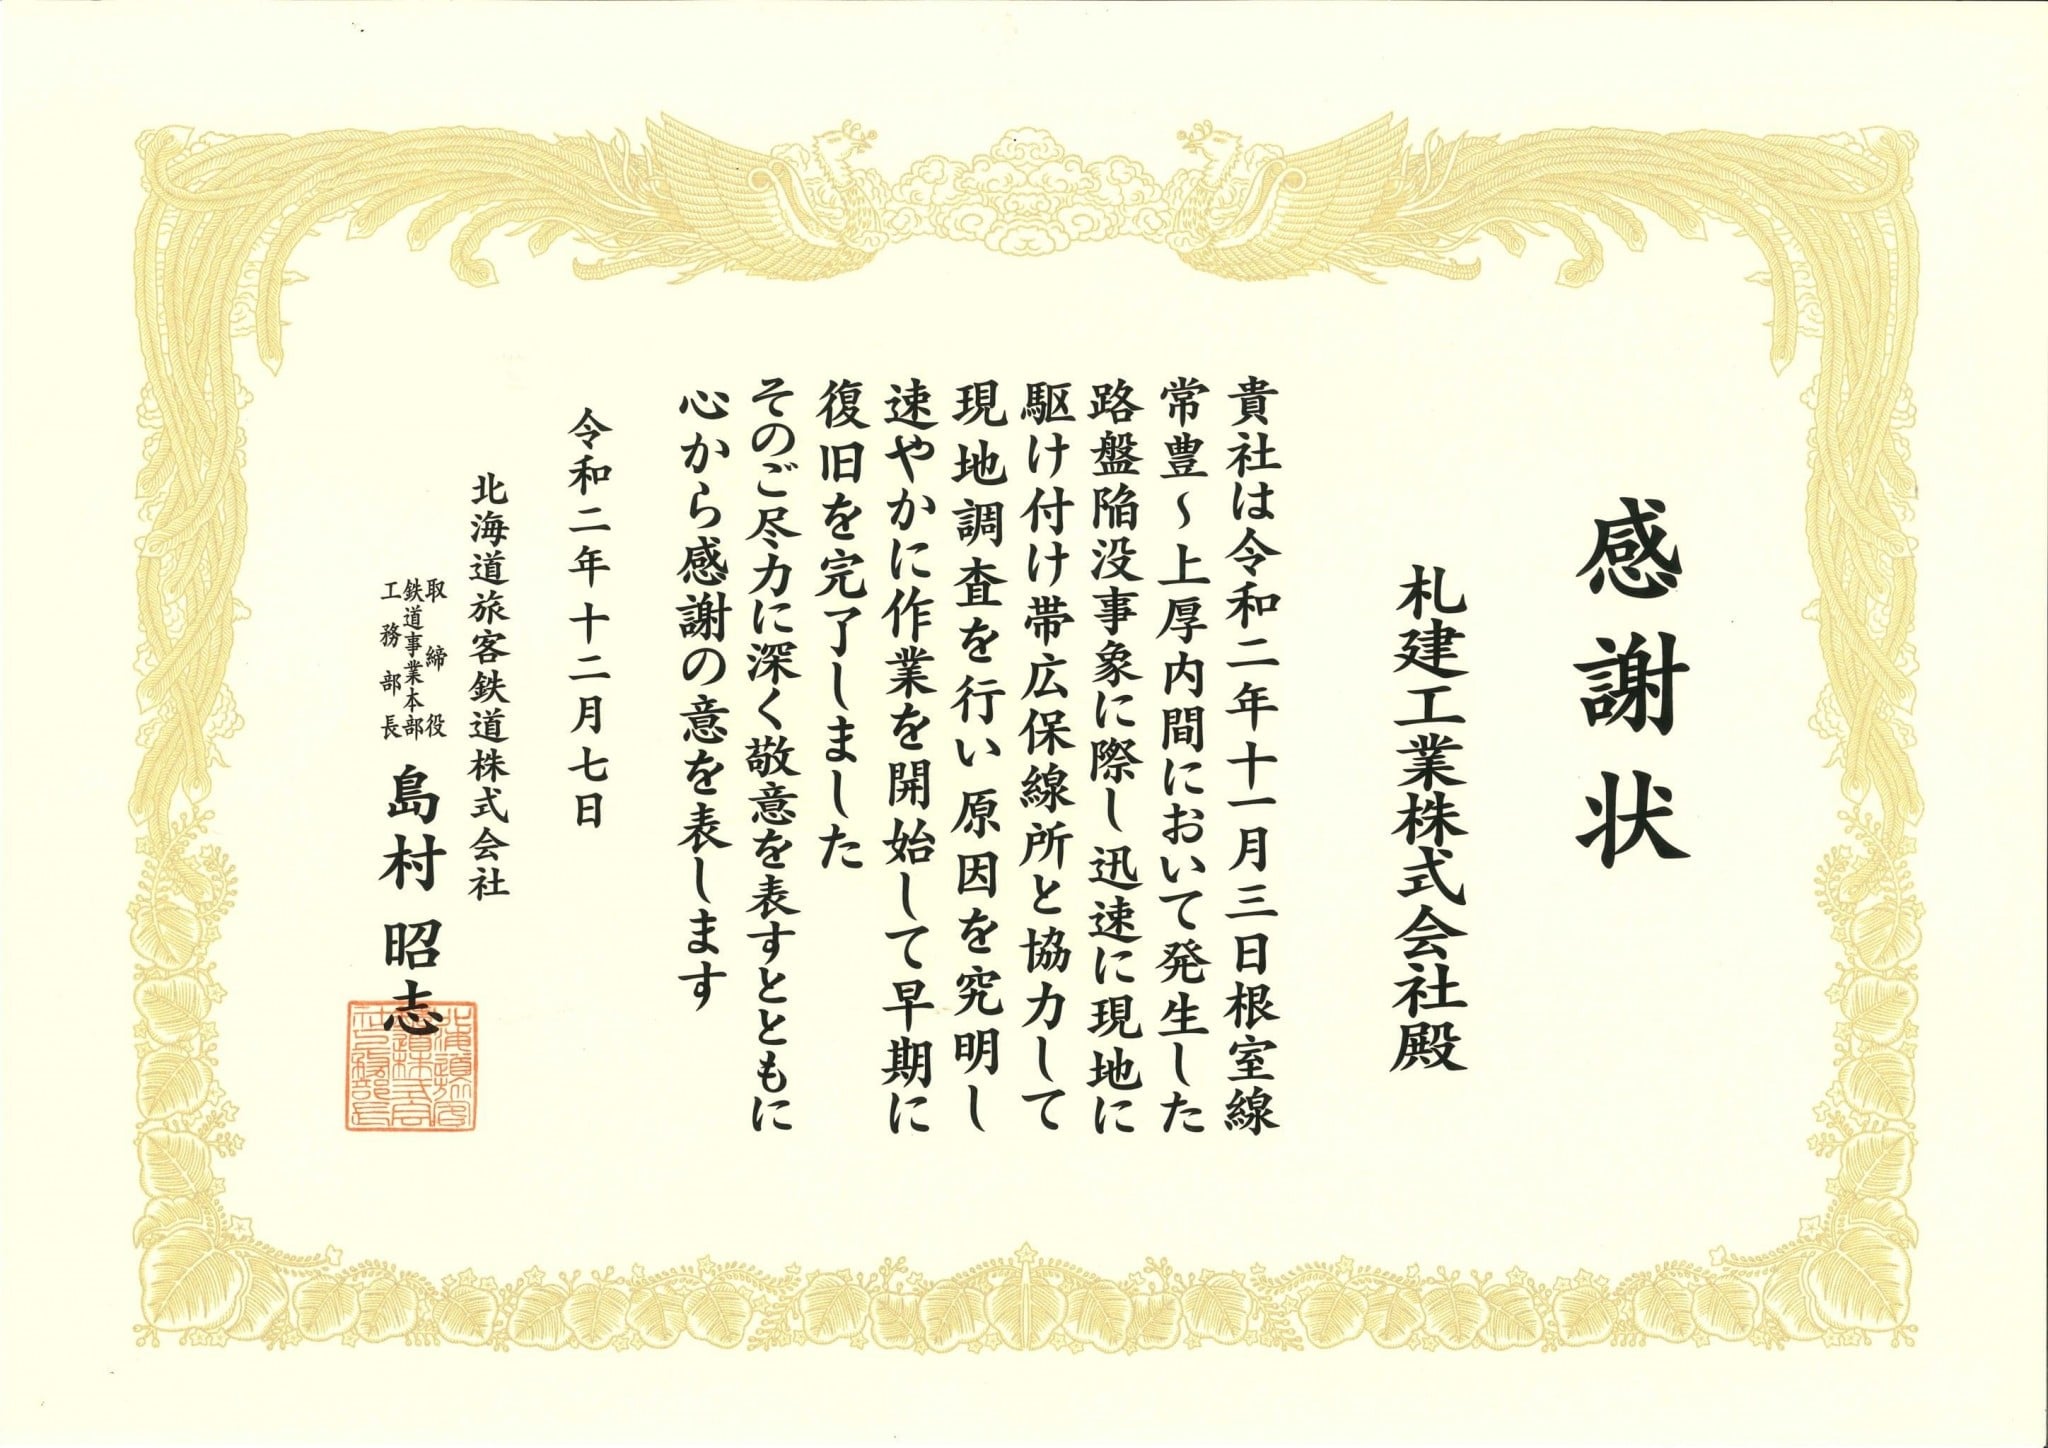 感謝状
札建工業株式会社殿
貴社は令和二年十一月三日根室線
常豊〜上厚内間において発生した
路盤陥没事象に際し迅速に現地に
駆け付け帯広保線所と協力して
現地調査を行い原因を究明し
速やかに作業を開始して早期に
復旧を完了しました
そのご尽力に深く敬意を表すとともに
心から感謝の意を表します
令和二年十二月七日
北海道旅客鉄道株式会社
取締役
鉄道事業本部
工務部長
島村昭志
北海道旅客
鉄道株式会
社工務部長